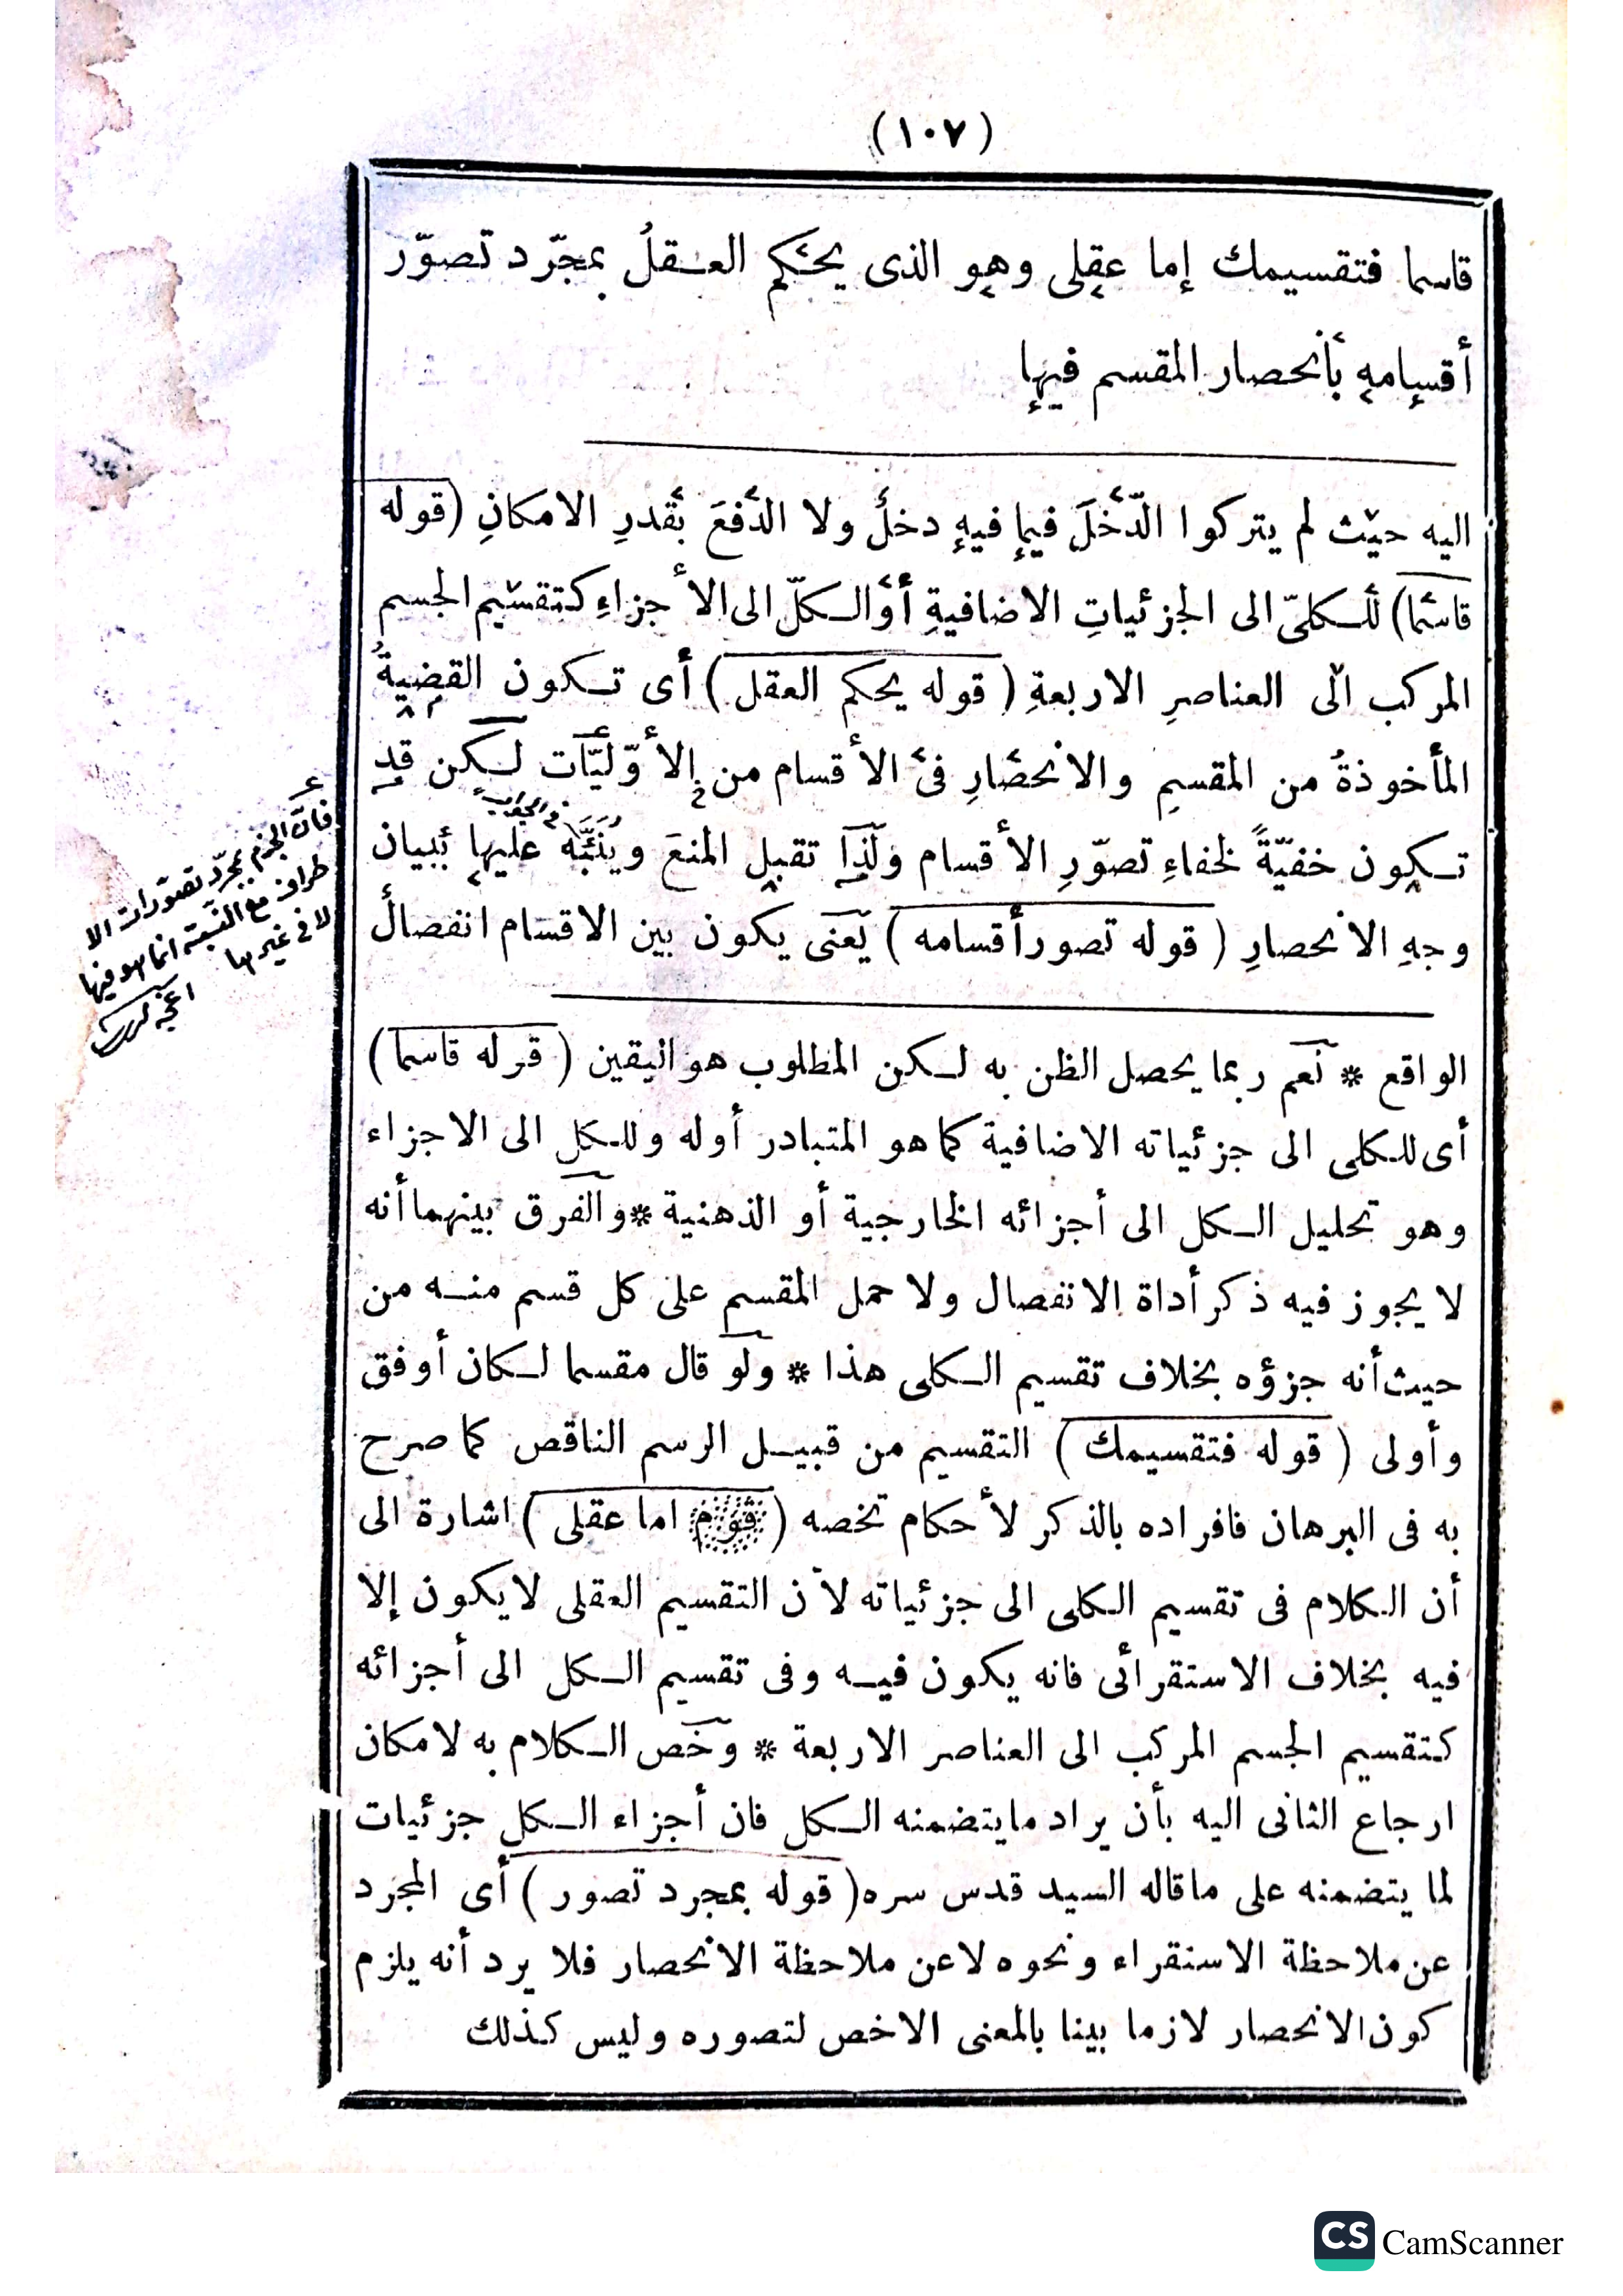 (١٠٧)
قاسما فتقسيمك إما عقلى وهو الذى يحكم العقلُ بمجرّد تصوّر
أقسامه بأنحصار المقسم فيها
اليه حيث لم يتركوا الدّخلَ فيما فيهِ دخلٌ ولا الدّفعَ بقدرِ الامكانِ (قوله
قاسما) للكلىّ الى الجزئياتِ الاضافيةِ أو الكلّ الى الأجزاءِ كتقسيم الجسم
المركب الى العناصرِ الاربعةِ (قوله يحكم العقل) أى تكون القضيةُ
المأخوذةُ من المقسمِ والانحصارِ فى الأقسام من الأوّليّات لكن قد
تكون خفيّةً لخفاءِ تصوّرِ الأقسام ولذا تقبل المنعَ ويُنَبَّه عليها ببيان
وجهِ الانحصارِ (قوله تصور أقسامه) يعنى يكون بين الاقسام انفصالٌ
فانّ الجزم بمجرّد تصوّرات الا
طراف مع النسبة انما هو فيها
لا فى غيرها
الواقع * نعم ربما يحصل الظن به لكن المطلوب هو اليقين (قوله قاسما)
أى للكلى الى جزئياته الاضافية كما هو المتبادر أوله وللكل الى الاجزاء
وهو تحليل الكل الى أجزائه الخارجية أو الذهنية * والفرق بينهما أنه
لا يجوز فيه ذكر أداة الانفصال ولا حمل المقسم على كل قسم منه من
حيث أنه جزؤه بخلاف تقسيم الكلى هذا * ولو قال مقسما لكان أوفق
وأولى (قوله فتقسيمك) التقسيم من قبيل الرسم الناقص كما صرح
به فى البرهان فافراده بالذكر لأحكام تخصه (قوله اما عقلى) اشارة الى
أن الكلام فى تقسيم الكلى الى جزئياته لأن التقسيم العقلى لا يكون إلا
فيه بخلاف الاستقرائى فانه يكون فيه وفى تقسيم الكل الى أجزائه
كتقسيم الجسم المركب الى العناصر الاربعة * وخص الكلام به لامكان
ارجاع الثانى اليه بأن يراد ما يتضمنه الكل فان أجزاء الكل جزئيات
لما يتضمنه على ما قاله السيد قدس سره (قوله بمجرد تصور) أى المجرد
عن ملاحظة الاستقراء ونحوه لا عن ملاحظة الانحصار فلا يرد أنه يلزم
كون الانحصار لازما بينا بالمعنى الاخص لتصوره وليس كذلك
CS CamScanner